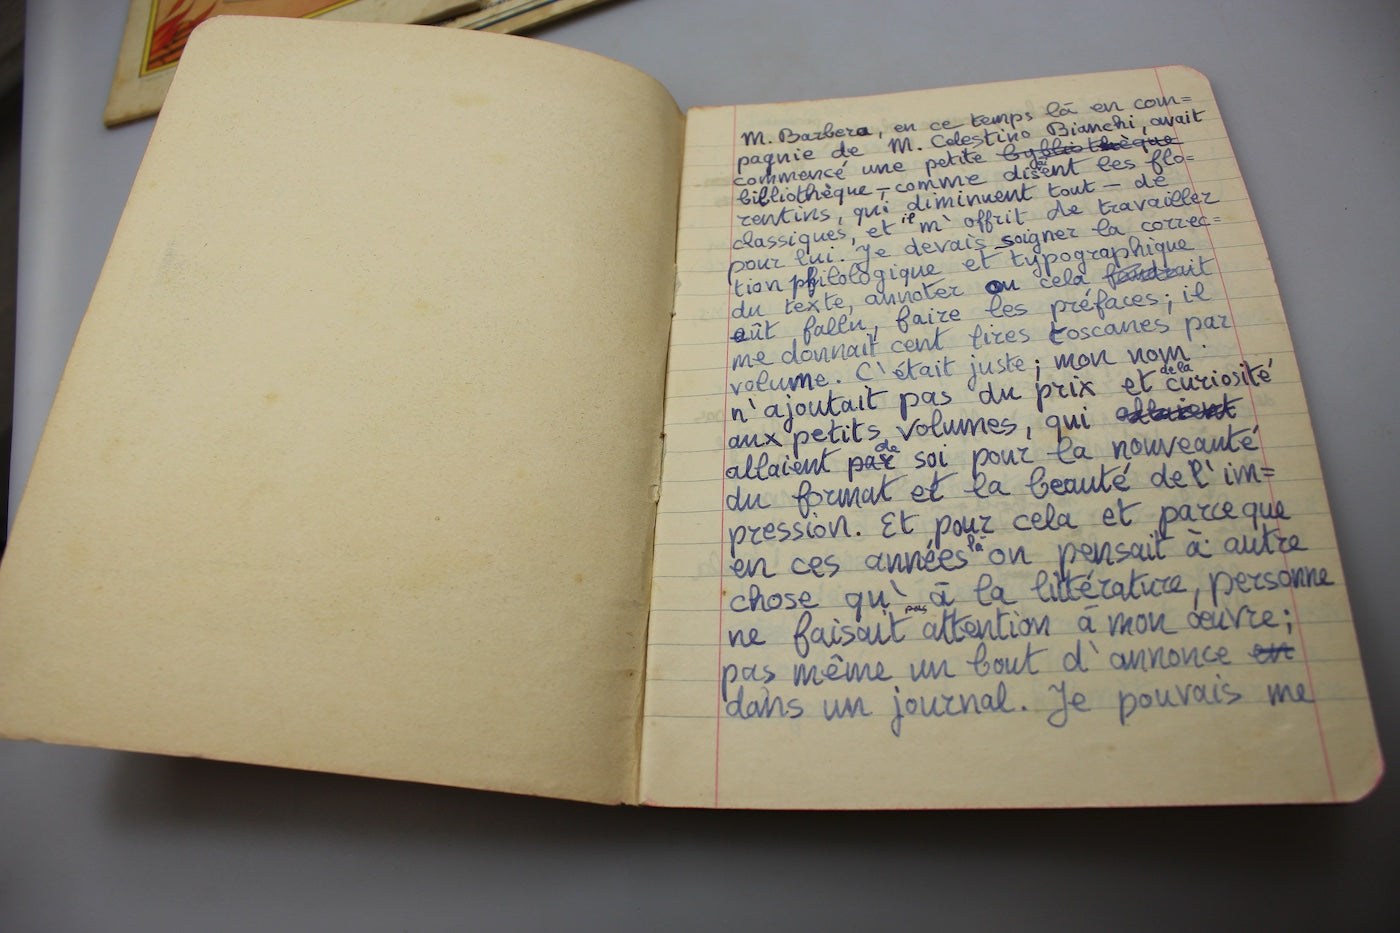 M. Barbera, en ce temps là en com=
pagnie de M. Celestino Bianchi, avait
commencé une petite bybliothèque
bibliothèque, — comme disent les flo=
rentins, qui diminuent tout — de
classiques, et il m'offrit de travailler
pour lui. Je devais soigner la correc=
tion philologique et typographique
du texte, annoter où cela faudrait
eût fallu, faire les préfaces; il
me donnait cent lires toscanes par
volume. C'était juste; mon nom
n'ajoutait pas du prix et de la curiosité
aux petits volumes, qui allaient
allaient par de soi pour la nouveauté
du format et la beauté de l'im=
pression. Et pour cela et parce que
en ces années là on pensait à autre
chose qu'à la littérature, personne
ne faisait pas attention à mon œuvre;
pas même un bout d'annonce en
dans un journal. Je pouvais me